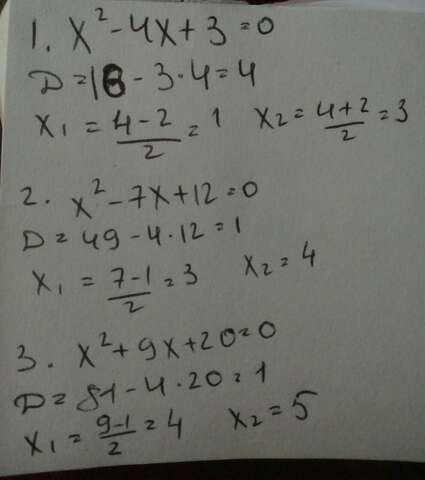 1. x² - 4x + 3 = 0
D = 16 - 3·4 = 4
x₁ = (4-2)/2 = 1 x₂ = (4+2)/2 = 3
2. x² - 7x + 12 = 0
D = 49 - 4·12 = 1
x₁ = (7-1)/2 = 3 x₂ = 4
3. x² + 9x + 20 = 0
D = 81 - 4·20 = 1
x₁ = (9-1)/2 = 4 x₂ = 5